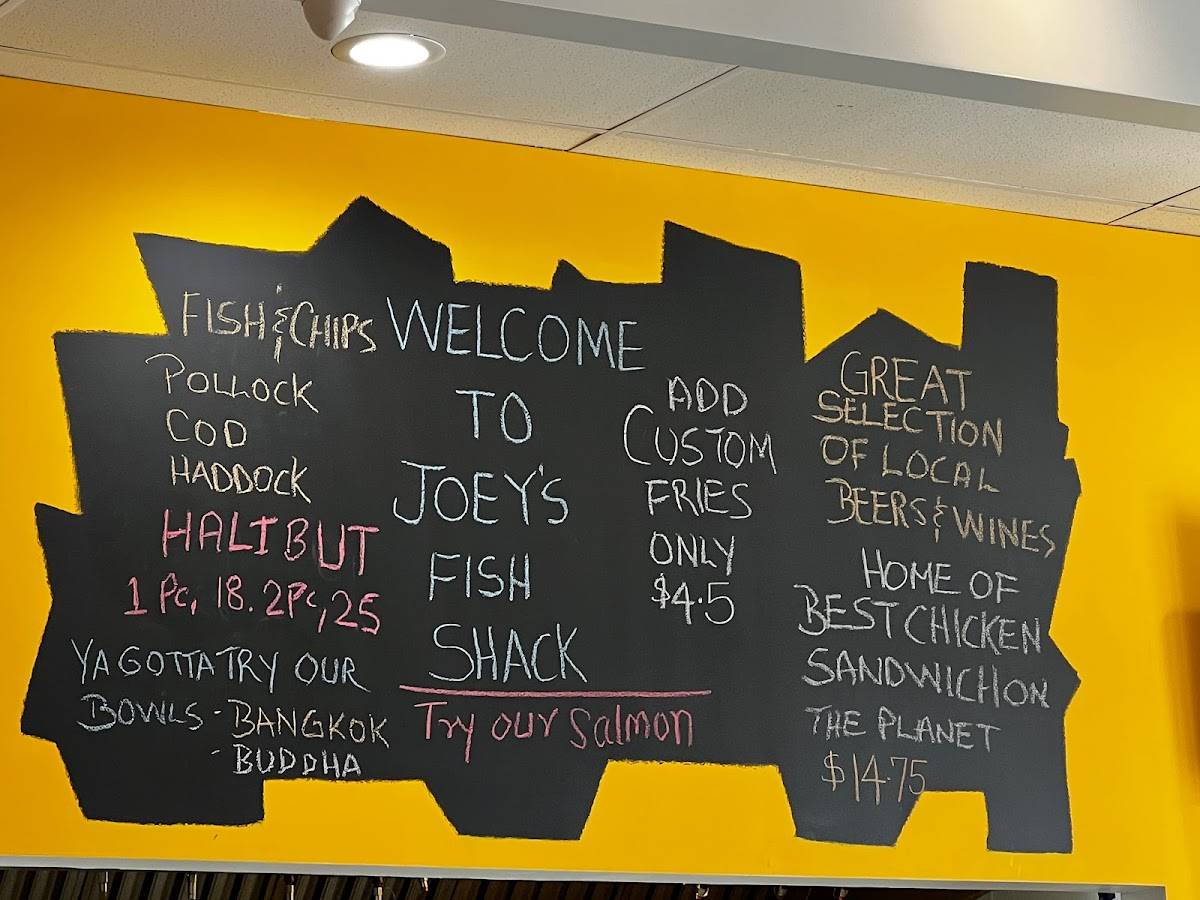 FISH & CHIPS
POLLOCK
COD
HADDOCK
HALIBUT
1 Pc, 18. 2Pc, 25
YA GOTTA TRY OUR
BOWLS - BANGKOK
- BUDDHA
WELCOME
TO
JOEY'S
FISH
SHACK
Try our Salmon
ADD
CUSTOM
FRIES
ONLY
$4.5
GREAT
SELECTION
OF LOCAL
BEERS & WINES
HOME OF
BEST CHICKEN
SANDWICH ON
THE PLANET
$14.75